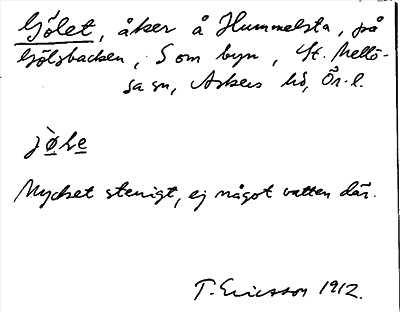 Gölet, åker å Hummelsta, på
Gölsbacken, S om byn, St. Mellö-
sa sn, Askers hd, Ör. l.
Mycket stenigt, ej något vatten där.
T. Ericsson 1912.